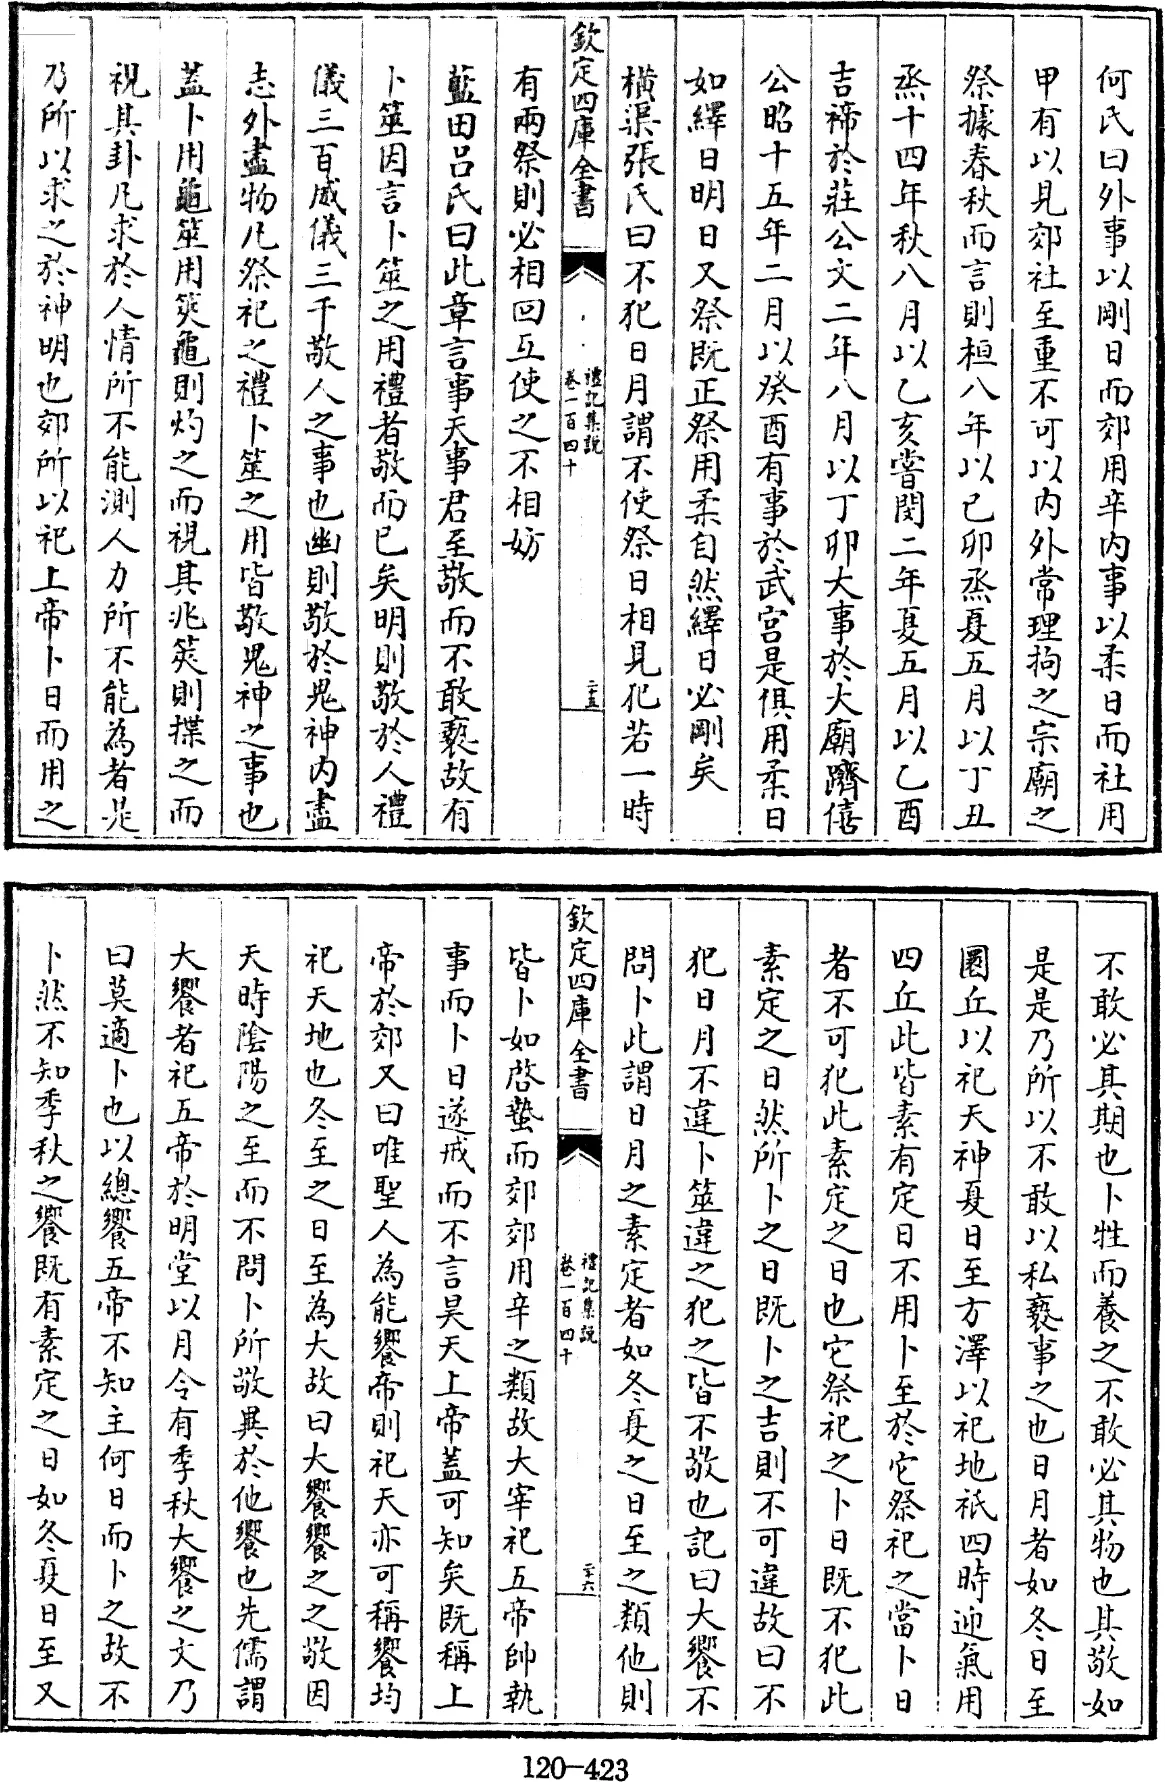 何氏曰外事以剛日而郊用辛内事以柔日而社用
甲有以見郊社至重不可以内外常理拘之宗廟之
祭據春秋而言則桓八年以己卯烝夏五月以丁丑
烝十四年秋八月以乙亥嘗閔二年夏五月以乙酉
吉禘於莊公文二年八月以丁卯大事於大廟躋僖
公昭十五年二月以癸酉有事於武宫是俱用柔日
如繹日明日又祭既正祭用柔自然繹日必剛矣
横渠張氏曰不犯日月謂不使祭日相見犯若一時
欽定四庫全書
禮記集說
卷一百四十
二十五
有兩祭則必相回互使之不相妨
藍田吕氏曰此章言事天事君至敬而不敢䙝故有
卜筮因言卜筮之用禮者敬而已矣明則敬於人禮
儀三百威儀三千敬人之事也幽則敬於鬼神内盡
志外盡物凡祭祀之禮卜筮之用皆敬鬼神之事也
蓋卜用龜筮用筴龜則灼之而視其兆筴則揲之而
視其卦凡求於人情所不能測人力所不能為者是
乃所以求之於神明也郊所以祀上帝卜日而用之
不敢必其期也卜牲而養之不敢必其物也其敬如
是是乃所以不敢以私䙝事之也日月者如冬日至
圜丘以祀天神夏日至方澤以祀地祇四時迎氣用
四丘此皆素有定日不用卜至於它祭祀之當卜日
者不可犯此素定之日也它祭祀之卜日既不犯此
素定之日然所卜之日既卜之吉則不可違故曰不
犯日月不違卜筮違之犯之皆不敬也記曰大饗不
問卜此謂日月之素定者如冬夏之日至之類他則
欽定四庫全書
禮記集說
卷一百四十
二十六
皆卜如啓蟄而郊郊用辛之類故大宰祀五帝帥執
事而卜日遂戒而不言昊天上帝蓋可知矣既稱上
帝於郊又曰唯聖人為能饗帝則祀天亦可稱饗均
祀天地也冬至之日至為大故曰大饗饗之之敬因
天時陰陽之至而不問卜所敬異於他饗也先儒謂
大饗者祀五帝於明堂以月令有季秋大饗之文乃
曰莫適卜也以總饗五帝不知主何日而卜之故不
卜然不知季秋之饗既有素定之日如冬夏日至又
120-423